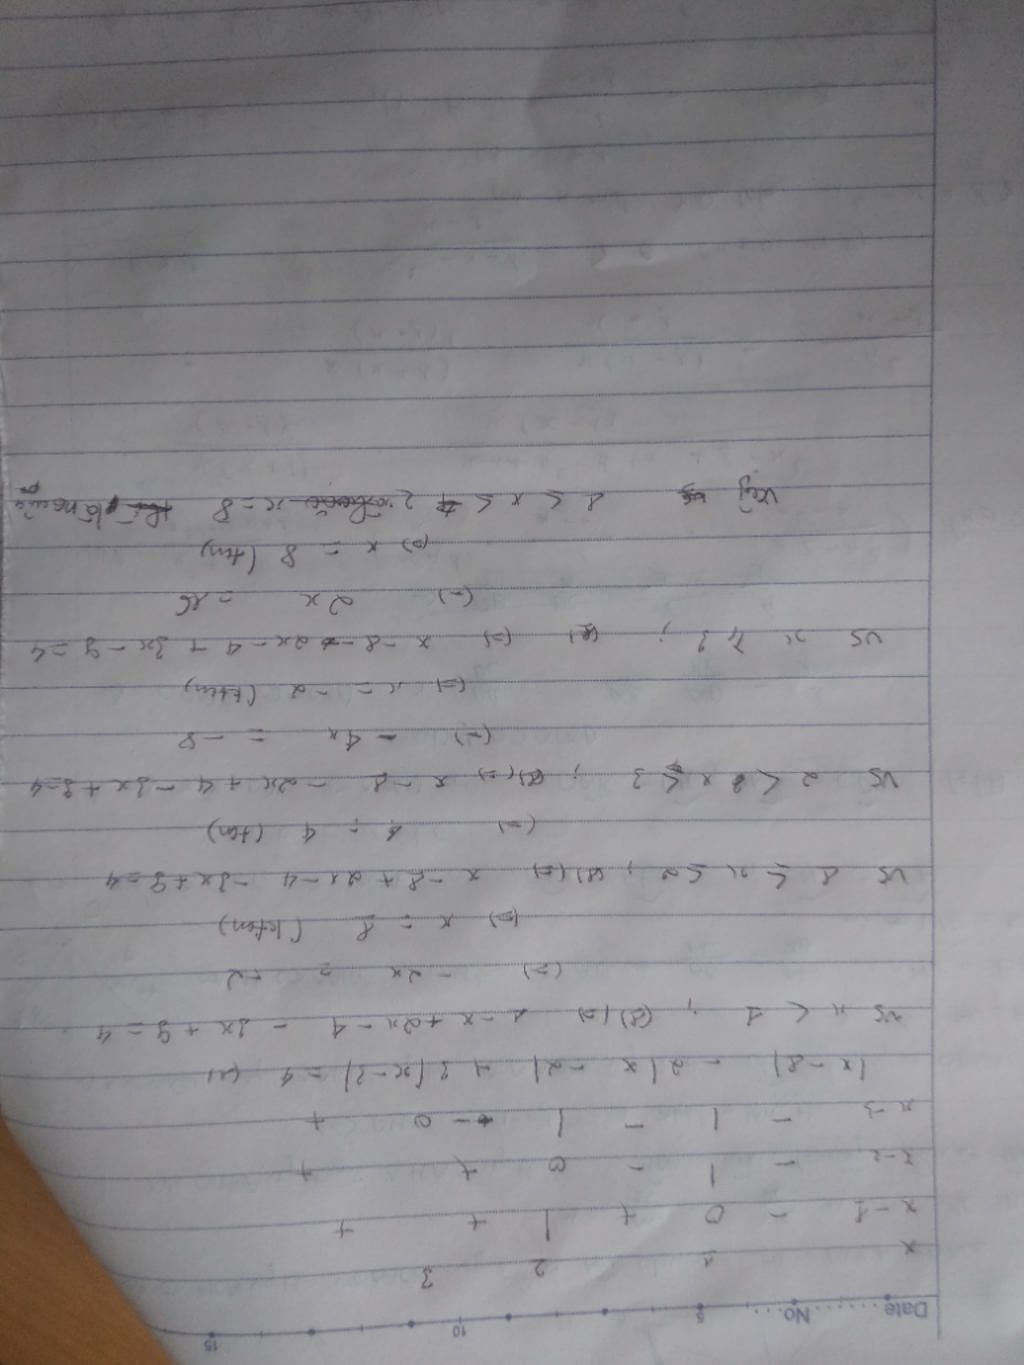 Date No. 5 10 15
x 1 2 3
x-1 - 0 + | + +
x-2 - | - 0 + +
x-3 - | - | - 0 +
|x-1| - 2|x-2| + 3|x-3| = 4 (1)
VS x < 1 ; (1) (=) 1-x+2x-4-3x+9=4
(=) -2x = -2
(=) x = 1 (ktm)
VS 1 ≤ x ≤ 2 ; (1) (=) x-1+2x-4-3x+9=4
(=) 4 = 4 (tm)
VS 2 < x < 3 ; (1) (=) x-1-2x+4-3x+9=4
(=) -4x = -8
(=) x = 2 (ktm)
VS x ≥ 3 ; (1) (=) x-1-2x+4+3x-9=4
(=) 2x =
(=) x = (tm)
Vậy 1 ≤ x ≤ 2 x = là nghiệm